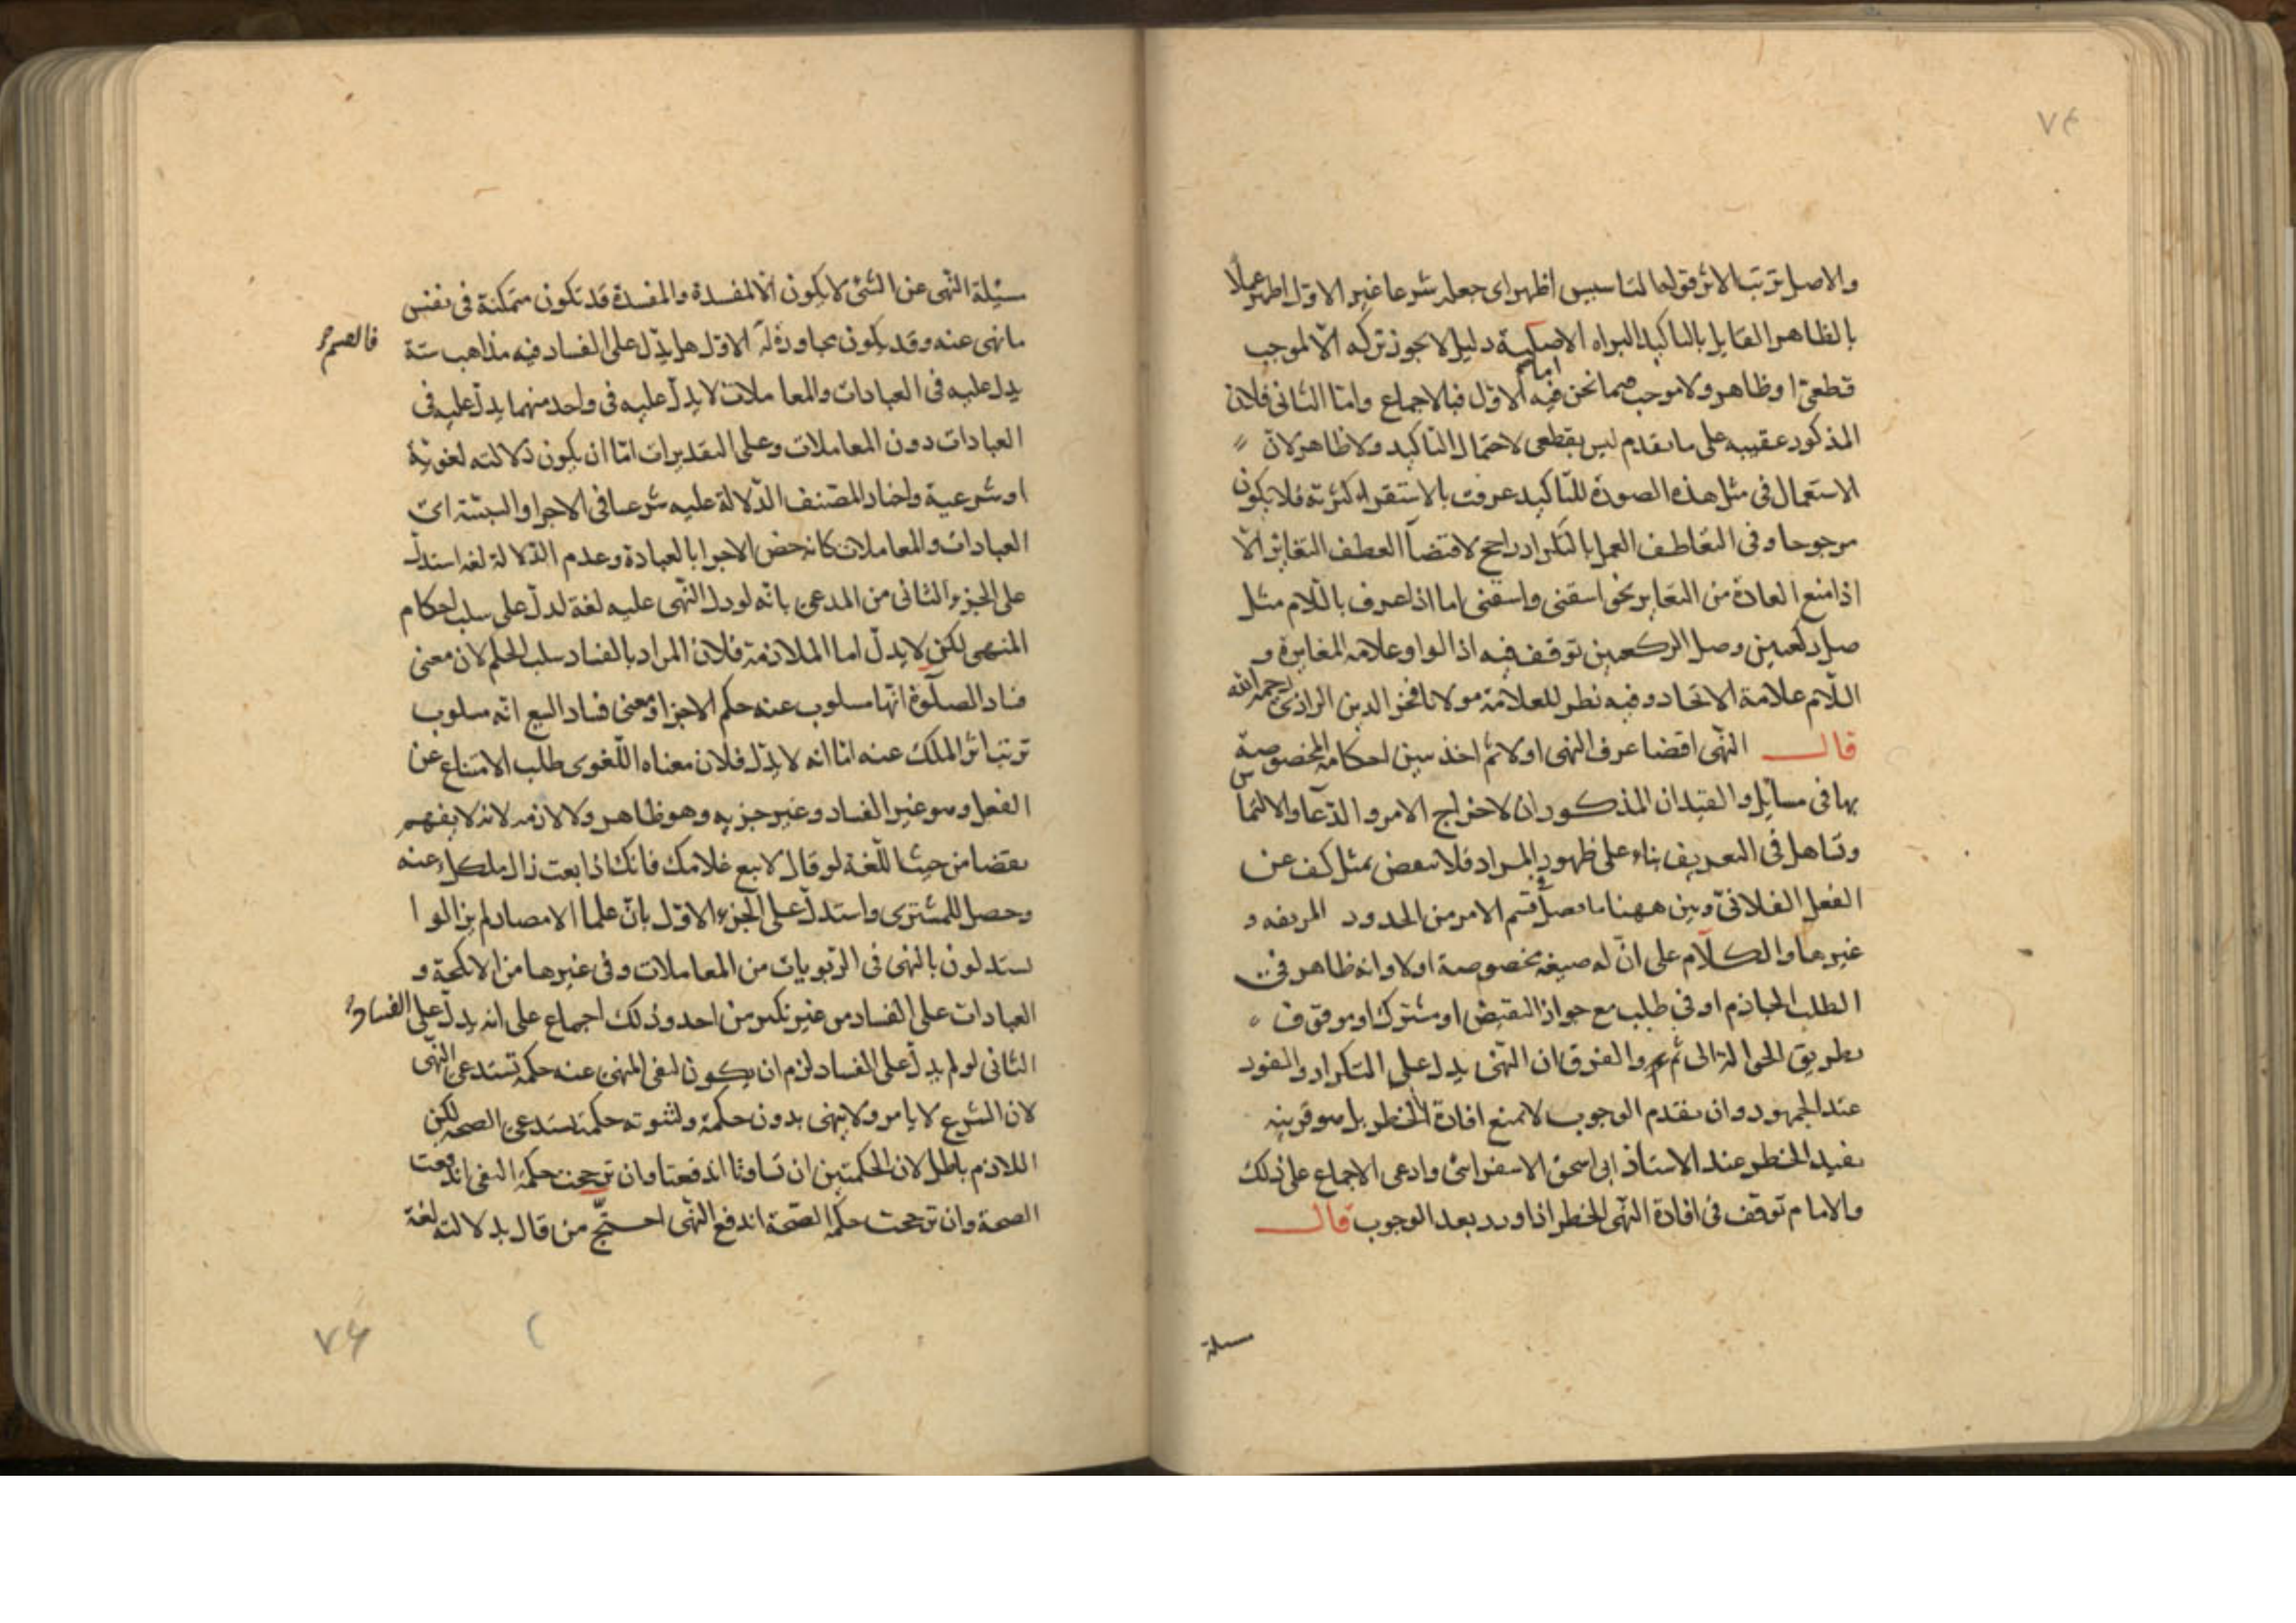 والاصل ترتب الاثر قوله التاسيس اظهر اى جعله شرعا غير الاول اظهر عملا
بالظاهر القايل بالتاكيد البراه الاصلية دليل لا يجوز تركه الا لموجب
قطعى او ظاهر ولا موجب فيما نحن فيه اما الاول فبالاجماع واما الثانى فلان
المذكور عقيبه على ما تقدم ليس بقطعى لاحتمال التاكيد ولا ظاهر لان
الاستعمال فى مثل هذه الصورة للتاكيد عرفت بالاستقراء كثرته فلا يكون
مرجوحا وفى التعاطف العمل بالتكرار راجح لاقتضا العطف التغاير الا
اذا منع العادة من التغاير نحو اسقنى واسقنى اما اذا عرف باللام مثل
صل ركعتين وصل الركعتين توقف فيه اذ الواو علامه المغايرة و
اللام علامة الاتحاد وفيه نظر للعلامة مولانا فخر الدين الرازى رحمه الله
قال النهى اقتضا عرف النهى اولا ثم اخذ يبين احكامه المخصوصة
بها فى مسايل والقيدان المذكوران لاخراج الامر والدعا والالتماس
وتساهل فى التعريف بناء على ظهور المراد فلا ينقض بمثل كف عن
الفعل الفلانى وبين ههنا ما فصل فى قسم الامر من الحدود المزيفه و
غيرها والكلام على ان له صيغه مخصوصة اولا وانه ظاهر فى
الطلب الجازم او فى طلب مع جواز النقيض او مشترك او موقوف
بطريق الحوالة الى ثم والفرق ان النهى يدل على التكرار والفور
عند الجمهور وان تقدم الوجوب لا يمنع افادة الحظر بل هو قرينه
تفيد الحظر عند الاستاذ ابى اسحق الاسفراينى وادعى الاجماع على ذلك
والامام توقف فى افادة النهى الحظر اذا ورد بعد الوجوب قال
مسئلة
مسئلة النهى عن الشئ لا يكون الا لمفسدة والمفسدة قد تكون متمكنة فى نفس
ما نهى عنه وقد يكون مجاورة له الاول هل يدل على الفساد فيه مذاهب ستة
يدل عليه فى العبادات والمعاملات لا يدل عليه فى واحد منهما يدل عليه فى
العبادات دون المعاملات وعلى التقديرات اما ان يكون دلالته لغوية
او شرعية واختار المصنف الدلالة عليه شرعا فى الاجزا والسببية اى
العبادات والمعاملات كانه خص الاجزا بالعبادة وعدم الدلالة لغه استدل
على الجزء الثانى من المدعى بانه لو دل النهى عليه لغة لدل على سلب احكام
المنهى لكن لا يدل اما الملازمة فلان المراد بالفساد سلب الحكم لان معنى
فساد الصلوة انها مسلوب عنه حكم الاجزا ومعنى فساد البيع انه مسلوب
ترتب اثر الملك عنه اما انه لا يدل فلان معناه اللغوى طلب الامتناع عن
الفعل وهو غير الفساد وغير جزيه وهو ظاهر ولا لازمه لانه لا يفهم
تناقضا من حيث اللغة لو قال لا تبع غلامك فانك اذا بعت زال ملكك عنه
وحصل للمشترى واستدل على الجزء الاول بان علما الامصار لم يزالوا
يستدلون بالنهى فى الربويات من المعاملات وفى غيرها من الانكحة و
العبادات على الفساد من غير نكير من احد وذلك اجماع على انه يدل على الفساد
الثانى لو لم يدل على الفساد لزم ان يكون لنفى المنهى عنه حكمة تستدعى النهى
لان الشرع لا يامر ولا ينهى بدون حكمة ولثبوته حكمة تستدعى الصحة لكن
اللازم باطل لان الحكمتين ان تساوتا اندفعتا وان ترجحت حكمة النفى اندفعت
الصحة وان ترجحت حكمة الصحة اندفع النهى احتج من قال بدلالته لغة